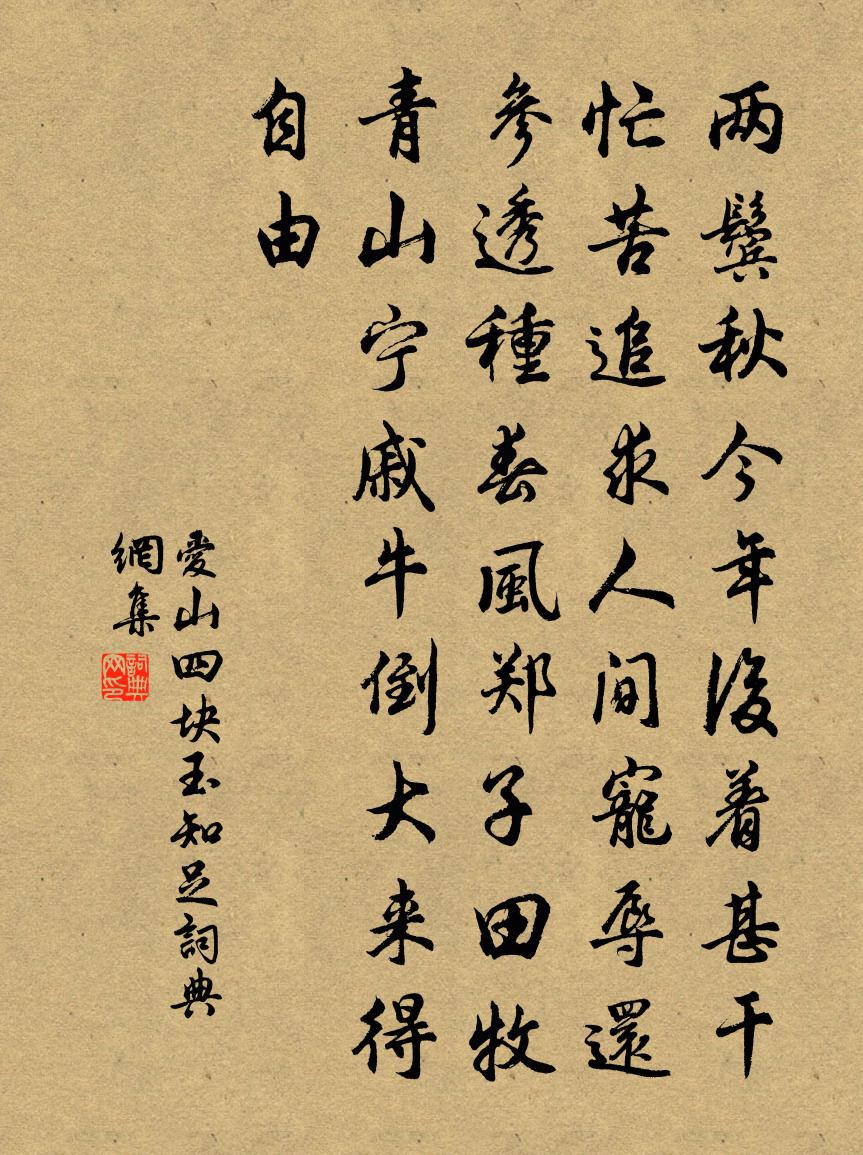 两鬓秋今年後着甚干
忙苦追求人间寵辱還
參透種春風郑子田牧
青山宁戚牛倒大来得
自由
愛山四块玉知足詞典
網集
詞典网印